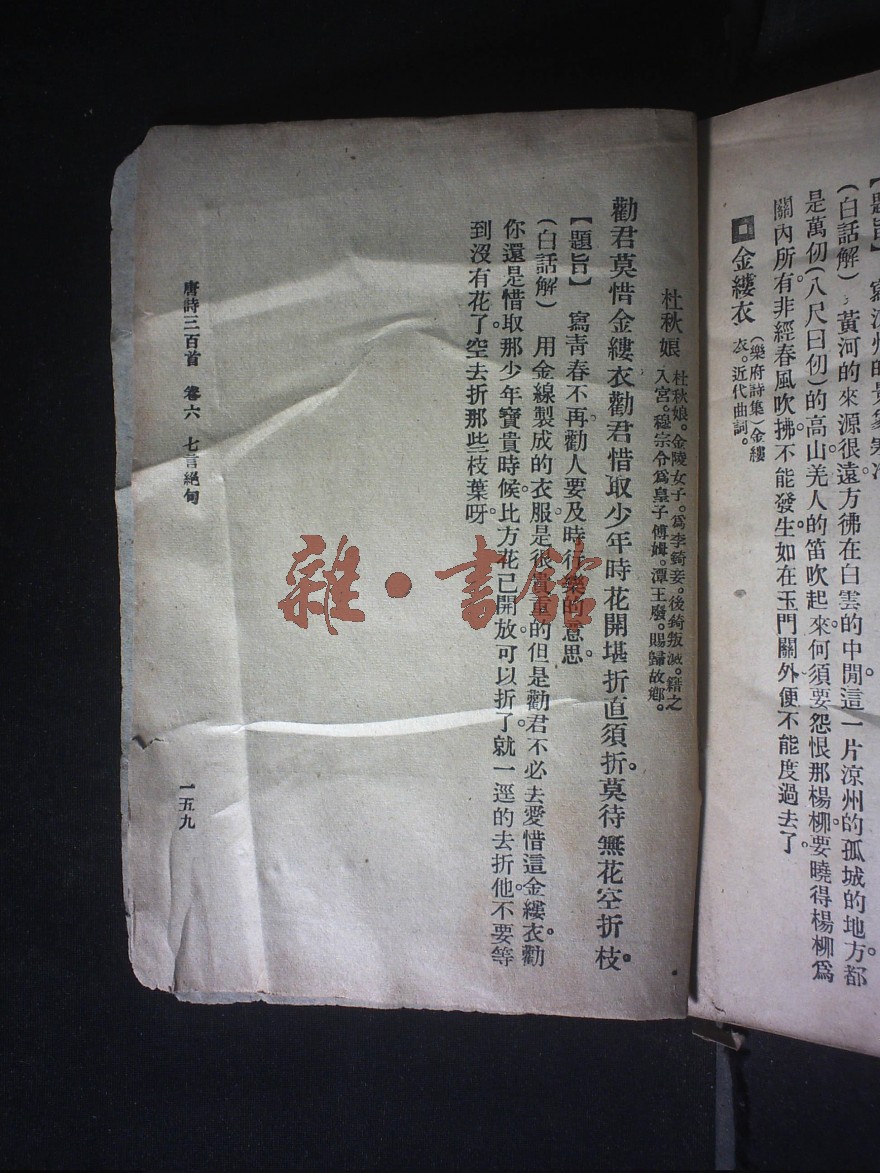 【題旨】　寫涼州的景象寒冷
(白話解)　黃河的來源很遠。方彿在白雲的中閒這一片涼州的孤城的地方都。
是萬仞(八尺曰仞)的高山。羌人的笛吹起來。何須要怨恨那楊柳。要曉得楊柳爲
關內所有。非經春風吹拂。不能發生。如在玉門關外。便不能度過去了
金縷衣 (樂府詩集)金縷
衣。近代曲詞。
杜秋娘 杜秋娘。金陵女子。爲李錡妾。後錡叛滅。籍之
入宮。穆宗令爲皇子傅姆。漳王廢。賜歸故鄉。
勸君莫惜金縷衣勸君惜取少年時花開堪折直須折。莫待無花空折枝。
【題旨】　寫青春不再。勸人要及時行樂的意思。
(白話解)　用金線製成的衣服。是很貴重的。但是勸君不必去愛惜這金縷衣。勸
你還是惜取那少年寶貴時候。比方花已開放。可以折了。就一逕的去折他。不要等
到沒有花了。空去折那些枝葉呀。
唐詩三百首　卷六　七言絕句
一五九
雜·書館